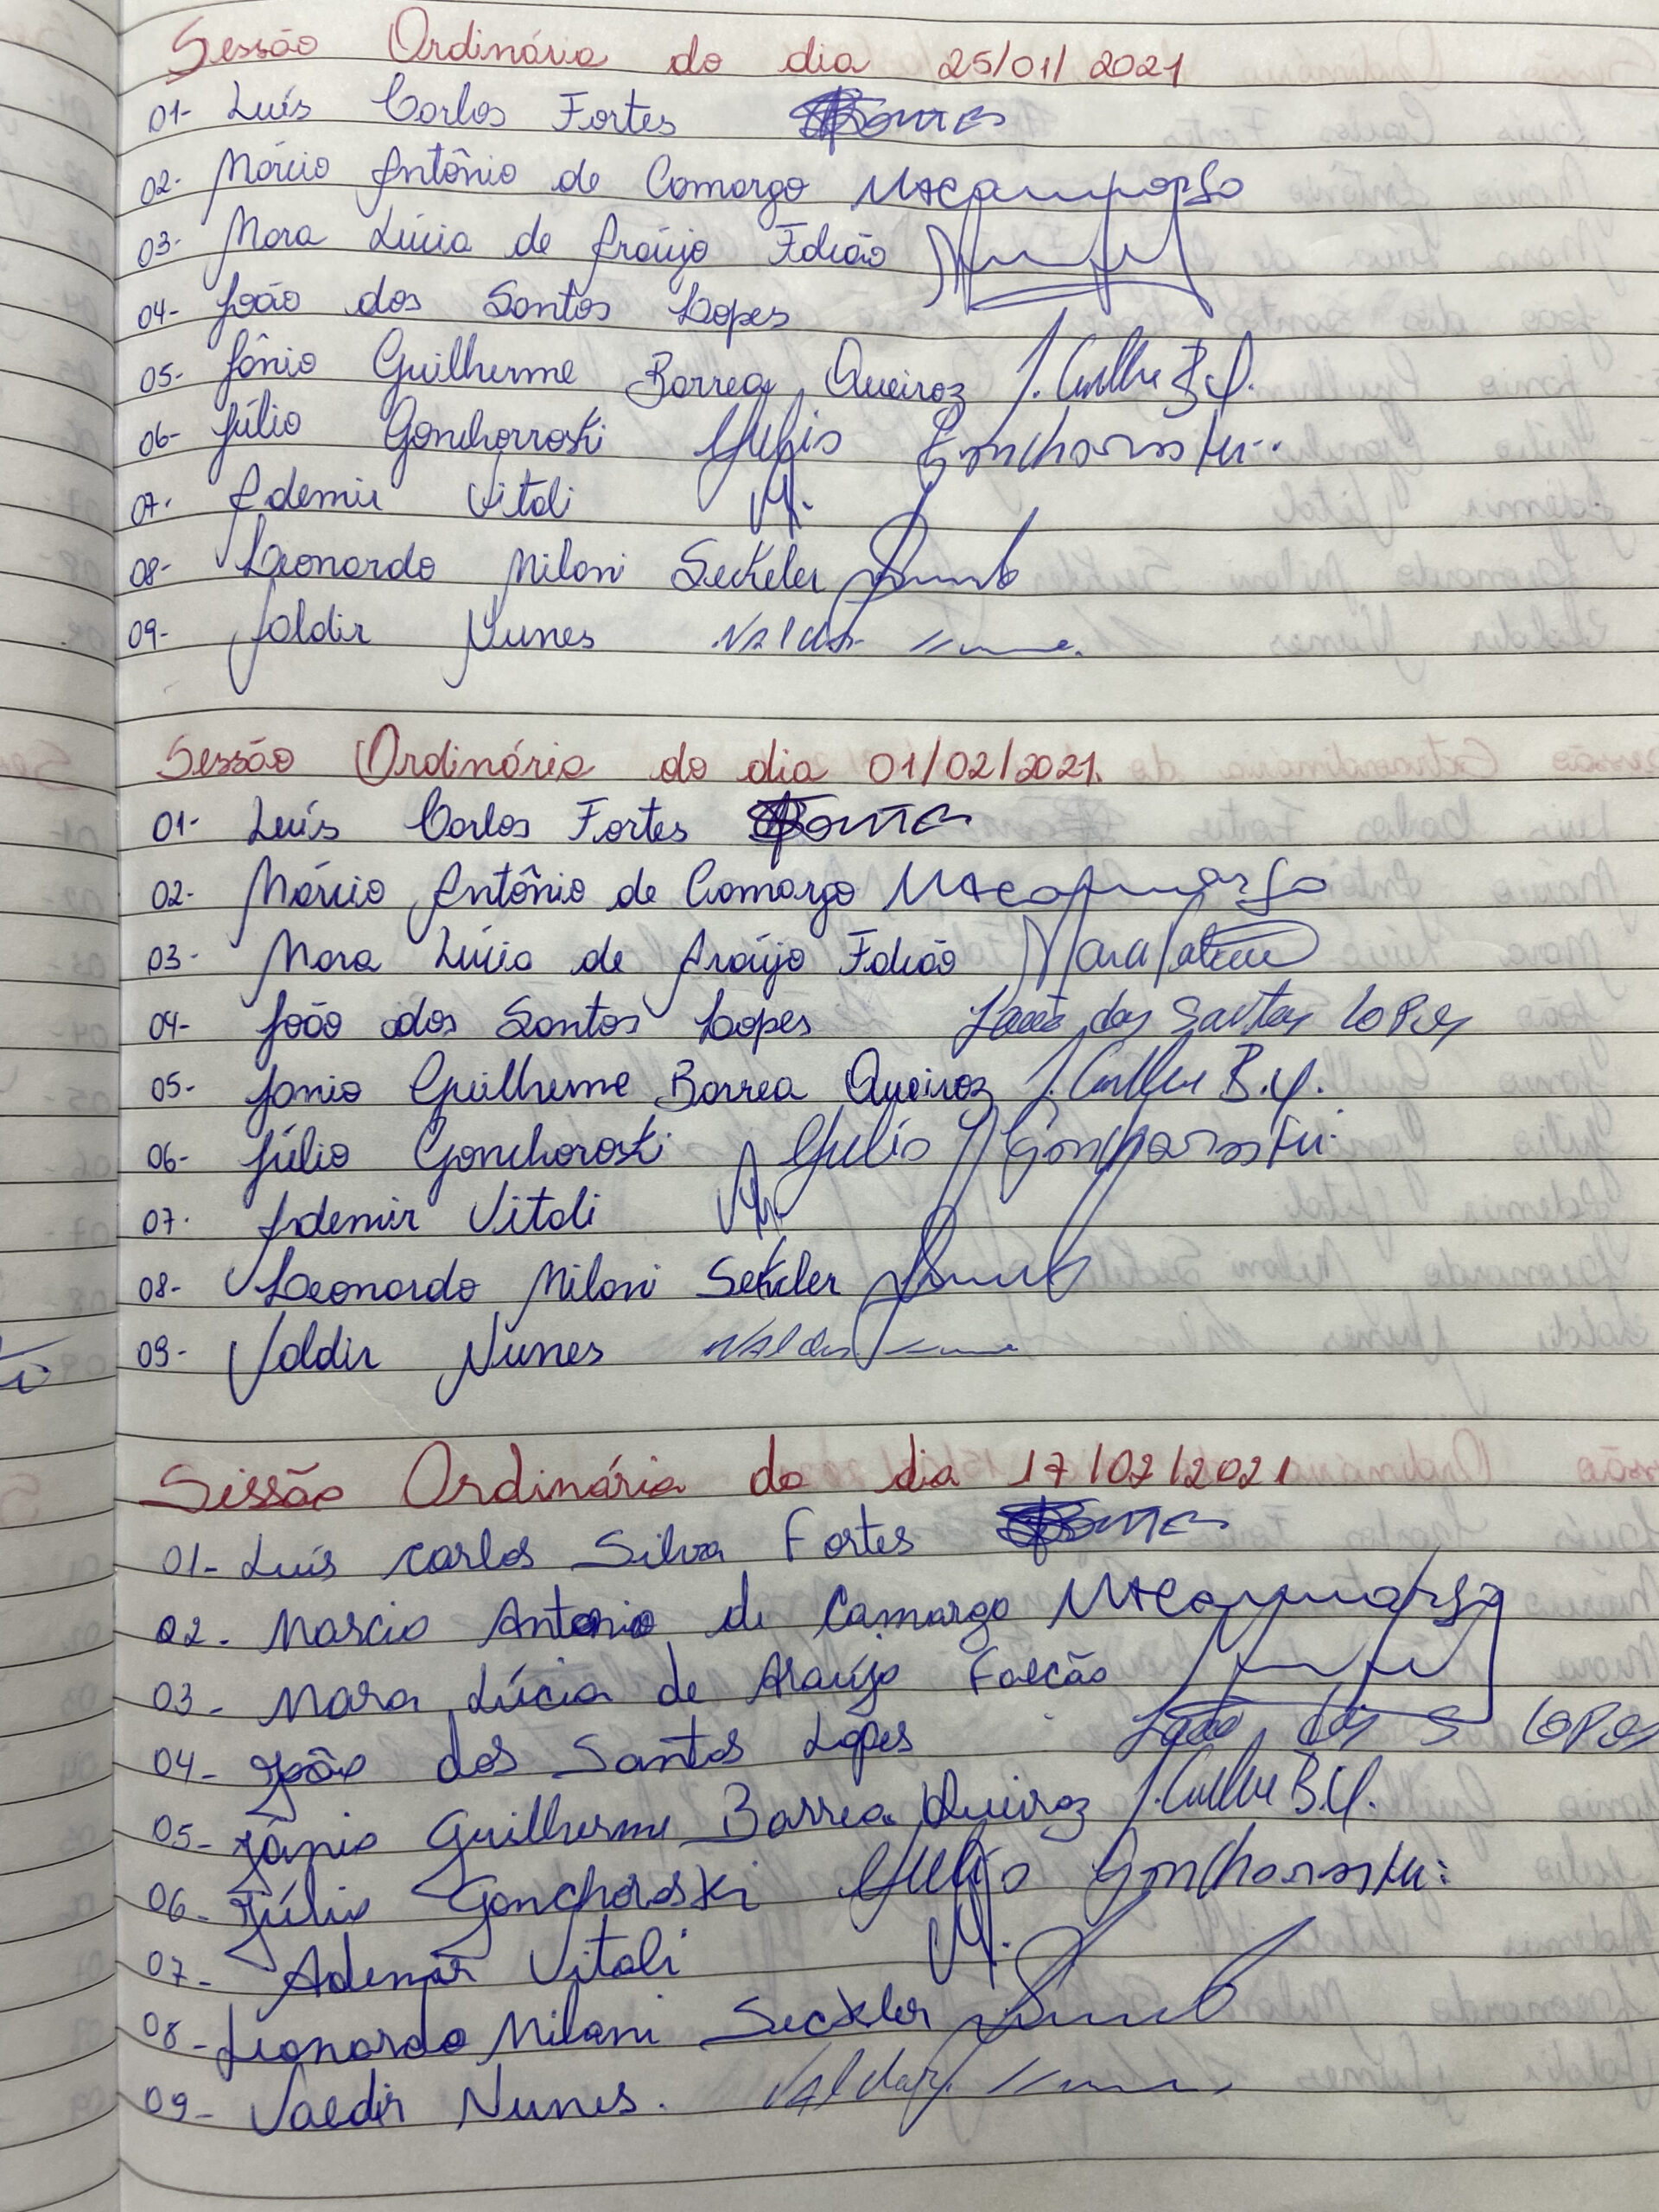 Sessão Ordinária do dia 25/01/2021
01- Luís Carlos Fortes
02- Márcio Antônio de Camargo MACamargo
03- Mara Lúcia de Araújo Falcão
04- João dos Santos Lopes
05- Jânio Guilherme Barrea Queiroz J. Guilhe B.Q.
06- Júlio Gonchorroski Julio Gonchoroski
07- Ademir Vitali
08- Leonardo Milani Seckeler
09- Valdir Nunes Valdir
Sessão Ordinária do dia 01/02/2021.
01- Luís Carlos Fortes
02- Márcio Antônio de Camargo MACamargo
03- Mara Lúcia de Araújo Falcão Mara
04- João dos Santos Lopes João dos Santos Lopes
05- Janio Guilherme Barrea Queiroz J. Guilhe B.Q.
06- Júlio Gonchoroski Julio Gonchoroski
07- Ademir Vitali
08- Leonardo Milani Sekcler
09- Valdir Nunes Valdir
Sissão Ordinária do dia 17/02/2021
01- Luís Carlos Silva Fortes
02- Marcio Antonio de Camargo MACamargo
03- Mara Lúcia de Araújo Falcão
04- João dos Santos Lopes João dos S Lopes
05- Jânio Guilherme Barrea Queiroz J. Guilhe B.Q.
06- Júlio Gonchoroski Julio Gonchoroski
07- Ademir Vitali
08- Leonardo Milani Seckler
09- Valdir Nunes. Valdir